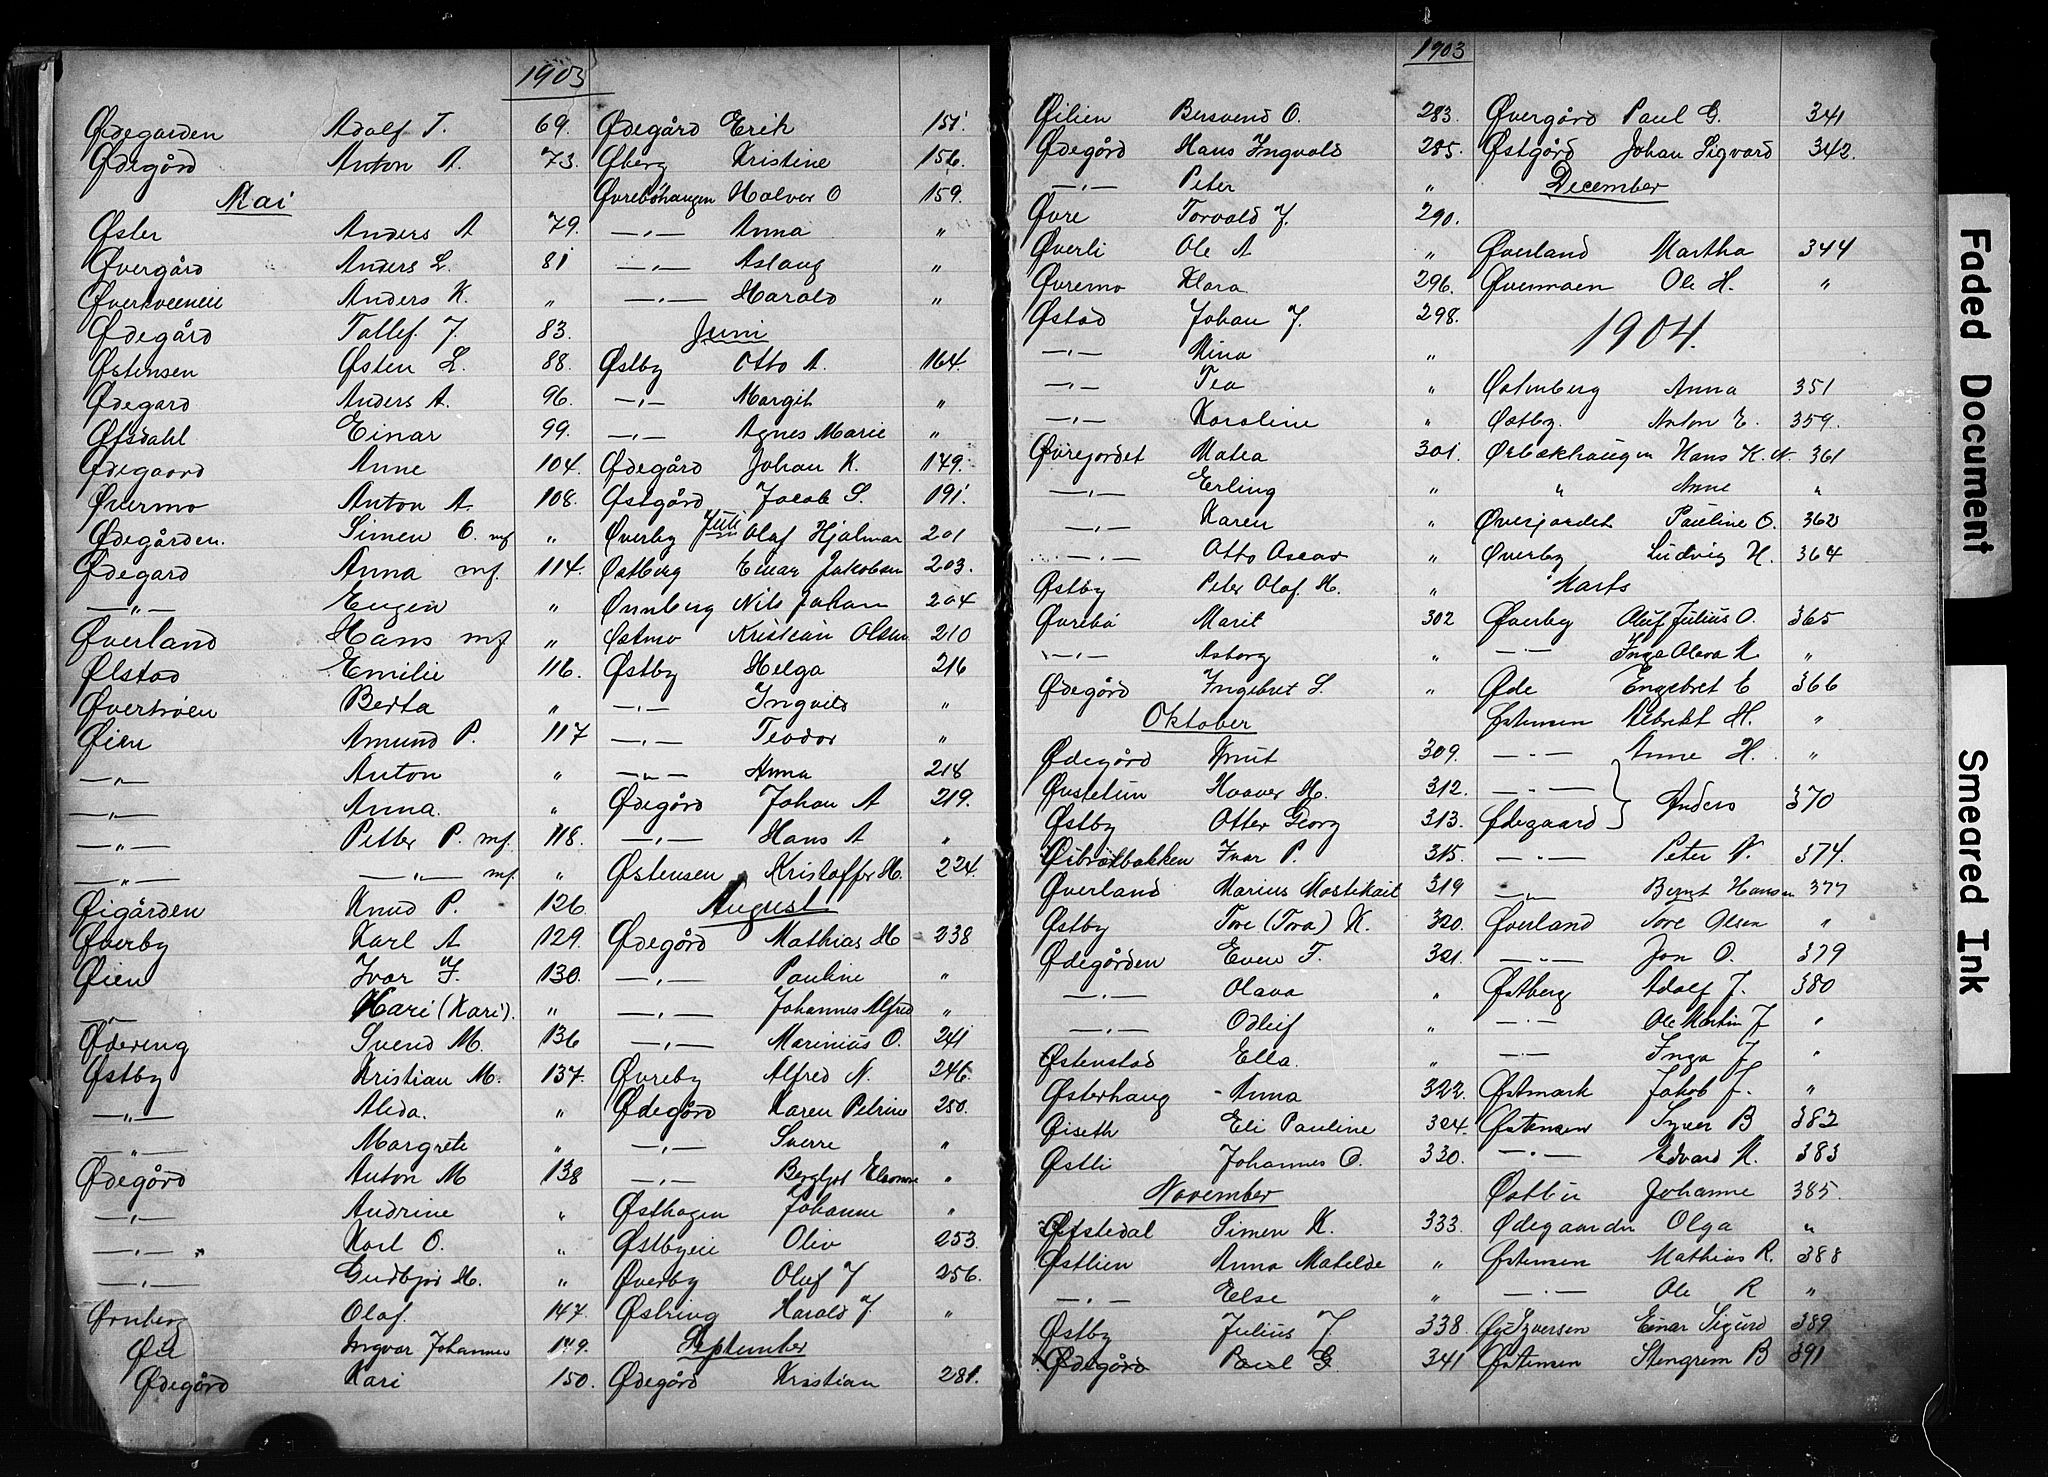 1903
Ødegarden Adolf T. 69.
Ødegård Anton A. 73.
Mai
Øster Anders A 79.
Øvergård Anders L. 81
Anders K. "
Ødegård Tollef J. 83.
Østensen Østen L. 88.
Ødegard Anders A. 96.
Øfsdahl Einar 99.
Ødegaard Anne 104.
Øvermo Anton A. 108.
Ødegården. Simen O. mf "
Ødegard Anna mf. 114.
—"— Eugen "
Øverland Hans mf "
Ølstad Emilie 116.
Berta "
Øien Amund P. 117
—"— Anton "
—"— Anna. "
—"— Petter P. mf. 118.
—"— —"— mf "
Øigården Knud P. 126.
Øverby Karl A 129.
Øien Ivar J. 130.
—"— Hari (Kari). "
Ødereng Svend M. 136
Østby Kristian M. 137.
—"— Alida. "
—"— Margrete "
Ødegård Anton M 138
—"— Andrine "
—"— Karl O. "
—"— Gudbjør H. "
Ørnberg Olaf. 147.
Øie Ingvar Johannes 149.
Ødegård Kari 150.
Ødegård Erik 151.
Øberg Kristine 156.
Øvrebøhaugen Halvor O 159.
—"— Anna "
—"— Aslaug "
—"— Harald "
Juni
Østby Otto A. 164.
—"— Margit "
—"— Agnes Marie "
Ødegård Johan K. 149.
Østgård Jacob S. 191.
Juli
Øverby Olaf Hjalmar 201
Østberg Einar Jakobsen 203.
Ønnberg Nils Johan 204
Østmo Kristian Olsen 210
Østby Helga 216
—"— Ingvild "
—"— Teodor "
—"— Anna 218
Ødegård Johan A 219.
—"— Hans A "
Østensen Kristoffer H. 224.
August
Ødegård Mathias H 238
—"— Pauline "
—"— Johannes Alfred "
—"— Marinius O. 241
Øvreby Alfred N. 246.
Ødegård Karen Petrine 250.
—"— Sverre "
—"— Bergljot Eleonore "
Østhagen Johanne "
Østbyeie Oliv 253.
Øverby Oluf J 256.
Østring Harald J. "
September
Ødegård Kristian 281.
1903
Øilien Bersvend O. 283.
Ødegård Hans Ingvald 285.
—"— Peter "
Øvre Torvald J. 290.
Øverli Ole A "
Øvremo Klara 296.
Østad Johan J. 298.
—"— Nina "
—"— Tea "
—"— Karoline "
Øvrejordet Matea 301.
—"— Erling "
—"— Karen "
—"— Otto Oscar "
Østby Peter Olaf H. "
Øvrebø Marit 302
—"— Asborg "
Ødegård Ingebret S. "
Oktober
Ødegård Knut 309.
Øvstetun Haaver H. 312.
Østby Otter Georg 313.
Ivar P. 315.
Øverland Marius 319
Østby Tore (Tora) K. 320.
Ødegården Even F. 321.
—"— Olava "
—"— Odleif "
Østenstad Ella. "
Østerhaug Anna 322.
Øiseth Eli Pauline 324.
Østli Johannes O. 330.
November
Øfstedal Simen K. 333.
Østlien Anna Matilde "
—"— Else "
Østby Julius J. 338.
Ødegård Paul G 341
Øvergård Paul G. 341
Østgård Johan Sigvard 342.
December
Øverland Martha 344
Øvermoen Ole H. "
1904.
Østenberg Anna 351
Østby. Anton E. 359.
Hans K. N. 361
" Anne "
Øverjordet Pauline O. 362
Øverby Ludvig H. 364
Marts
Øverby Oluf Julius O. 365
—"— Inga Olava K. "
Øde Engebret E 366
Østensen Albrikt H. "
—"— Anne H. "
—"—
Ødegaard Anders 370
—"— Peter N. 374.
—"— Bernt Hansen 377
Øverland Tore Olsen "
—"— Jon O. 379
Østberg Adolf J. 380
—"— Ole Martin J "
—"— Inga J "
Østmark Jakob J. "
Østensen Syver B 382
—"— Edvard K. 383
Østlie Johanne 385.
Ødegaarden Olga "
Østensen Mathias R. 388
—"— Ole R "
Einar Sigurd 389
Østensen Stengrim B 391
Faded Document
Smeared Ink